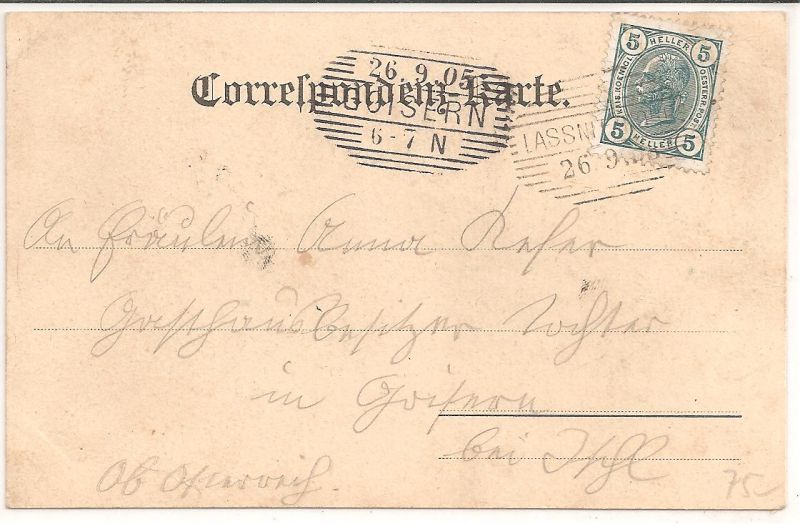 Correspondenz-Karte.
26.9.05
GOISERN
6-7 N
LASSN
26 9
5 HELLER 5
KAIS. KOENIGL.
OESTERR. POST
5 HELLER 5
An Fräulein Anna Kefer
Gasthausbesitzer Tochter
in Goisern
bei Ischl
Ob Österreich.
75